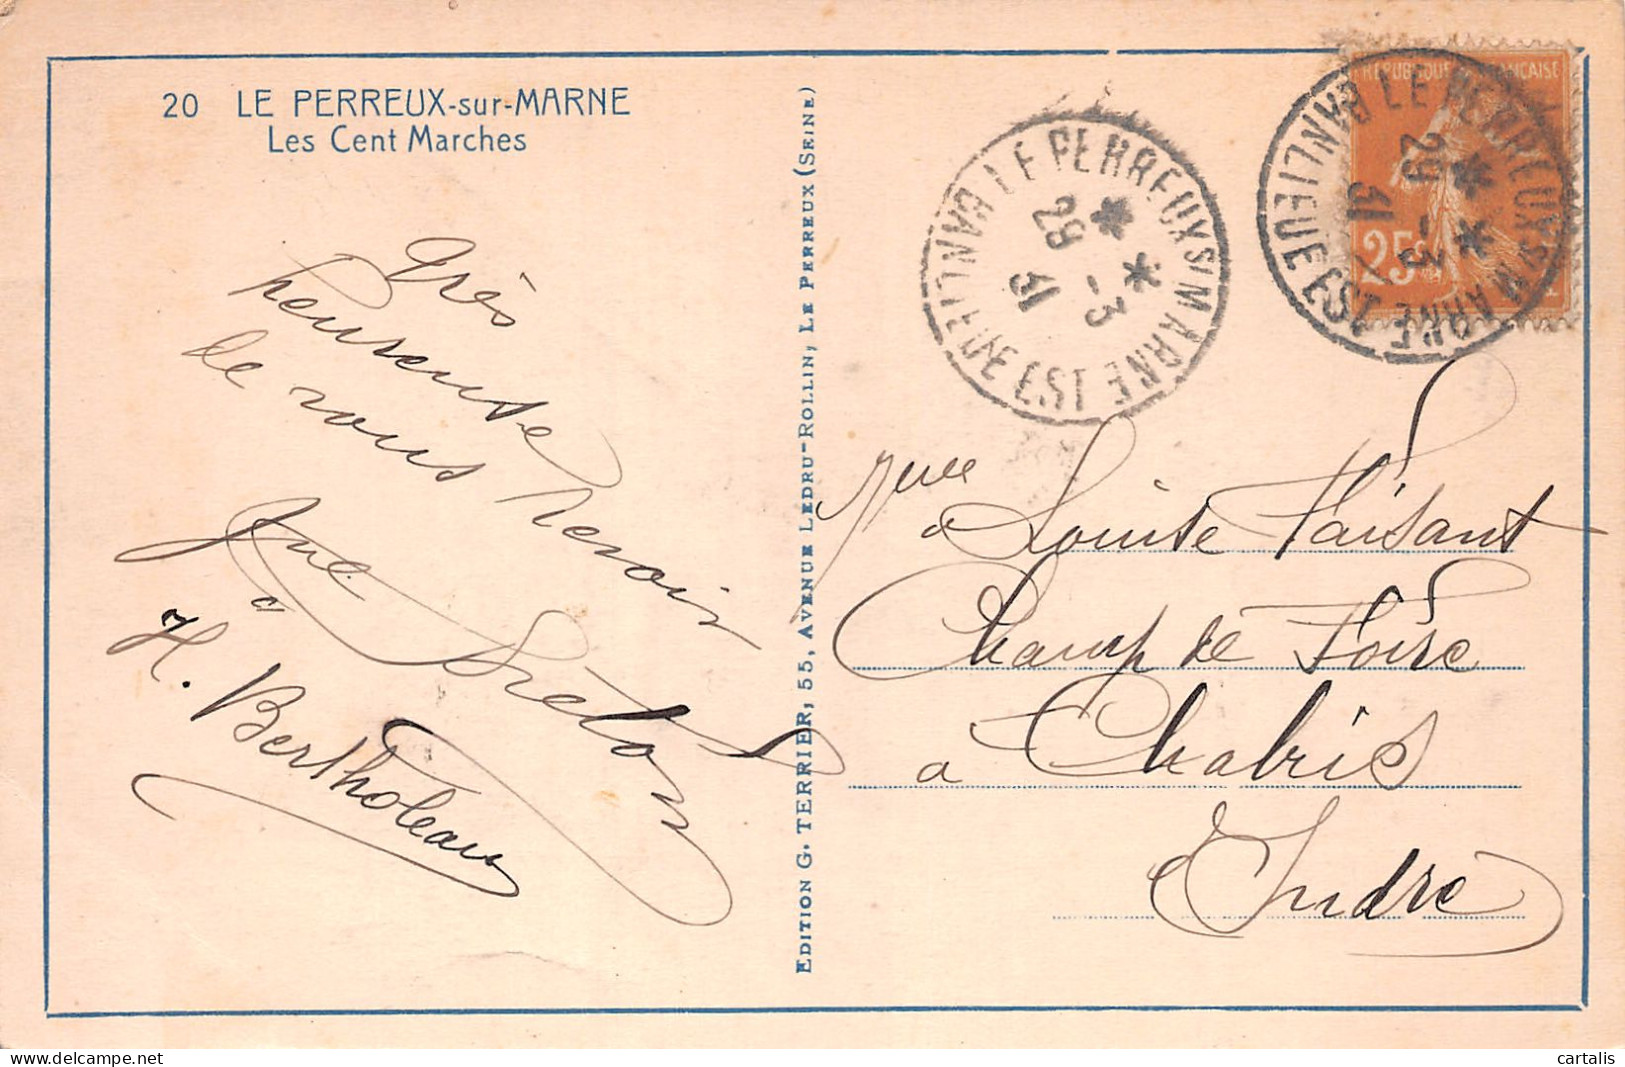 20 LE PERREUX-sur-MARNE
Les Cent Marches
Très
heureuse
de vous revoir
H. Bertholeau
EDITION G. TERRIER, 55, AVENUE LEDRU-ROLLIN, LE PERREUX (SEINE)
LE PERREUX S/ MARNE
BANLIEUE EST
29 - 3
31
REPUBLIQUE FRANÇAISE
25c
LE PERREUX S/ MARNE
BANLIEUE EST
29 - 3
31
Louise Vaisant
Champ de Foire
a Chabris
Indre
cartalis